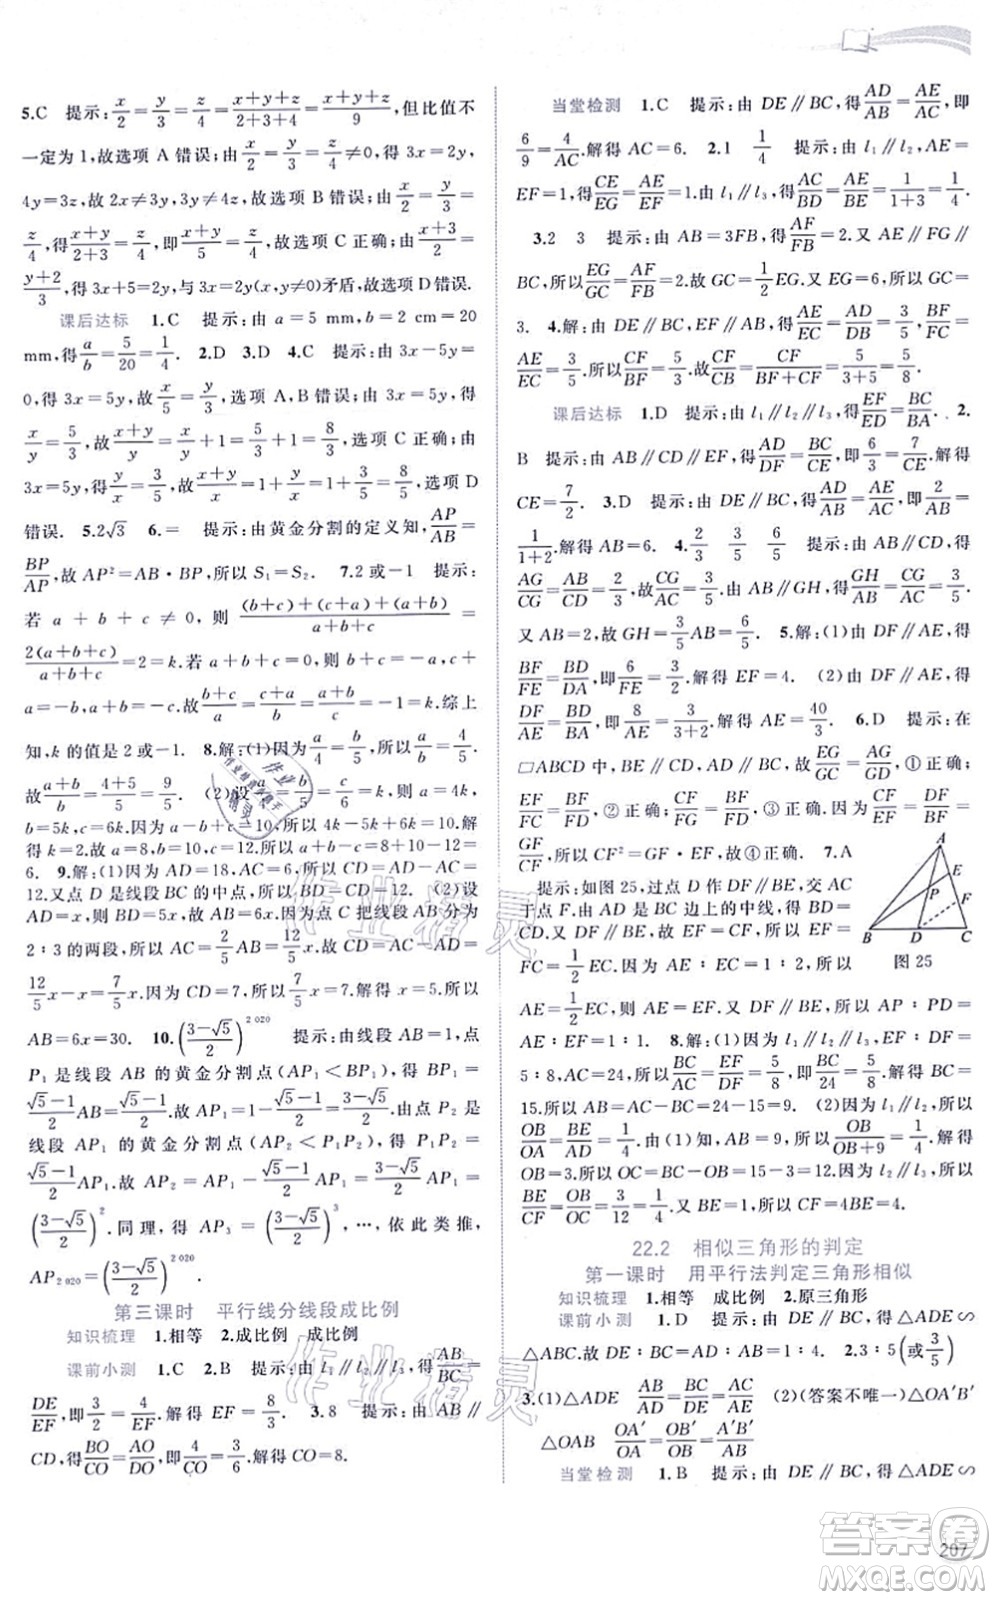 5.C 提示:x/2=y/3=z/4=(x+y+z)/(2+3+4)=(x+y+z)/9,但比值不
一定为1,故选项A错误;由x/2=y/3=z/4≠0,得3x=2y,
4y=3z,故2x≠3y,3y≠4z,故选项B错误;由x/2=y/3=
z/4,得(x+y)/(2+3)=z/4,即(x+y)/5=z/4,故选项C正确;由(x+3)/2=
(y+2)/3,得3x+5=2y,与3x=2y(x,y≠0)矛盾,故选项D错误.
课后达标 1.C 提示:由a=5 mm,b=2 cm=20
mm,得a/b=5/20=1/4. 2.D 3.D 4.C 提示:由3x-5y=
0,得3x=5y,故x/5=y/3,故选项A,B错误;由3x=5y,得
x/y=5/3,故(x+y)/y=x/y+1=5/3+1=8/3,选项C正确;由
3x=5y,得y/x=3/5,故(x+y)/x=1+y/x=1+3/5=8/5,选项D
错误. 5.2√3 6.= 提示:由黄金分割的定义知,AP/AB=
BP/AP,故AP²=AB·BP,所以S₁=S₂. 7.2或-1 提示:
若a+b+c≠0,则((b+c)+(a+c)+(a+b))/(a+b+c)=
2(a+b+c)/(a+b+c)=2=k.若a+b+c=0,则b+c=
a=-b,a+b=-c.故(b+c)/a=(a+c)/b=(a+b)/c=-1=k.综上
知,k的值是2或-1. 8.解:(1)因为a/4=b/5,所以a/b=4/5.
故(a+b)/b=(4+5)/5=9/5. (2)设
5k,c=6k.因为a-b+c=10,所以4k-5k+6k=10.解
得k=2.所以a=8,b=10,c=12.所以a+b-c=8+10-12=
6. 9.解:(1)因为AD=18,AC=
12.又点D是线段BC的中点,所以BD=CD=12. (2)设
AD=x,则BD=5x,所以AB=6x.因为点C把线段AB分为
2∶3的两段,所以AC=2/5AB=12/5x.故CD=AC-AD=
12/5x-x=7/5x.因为CD=7,所以7/5x=7.解得x=5.所以
AB=6x=30. 10.((3-√5)/2)²⁰²⁰ 提示:由线段AB=1,点
P₁是线段AB的黄金分割点(AP₁<BP₁),得BP₁=
(√5-1)/2AB=(√5-1)/2,故AP₁=1-(√5-1)/2=(3-√5)/2.由点P₂是
线段AP₁的黄金分割点(AP₂<P₁P₂),得P₁P₂=
(√5-1)/2AP₁.故AP₂=AP₁-(√5-1)/2AP₁=(3-√5)/2AP₁
=((3-√5)/2)².同理,得AP₃=((3-√5)/2)³,…,依此类推,
AP₂₀₂₀=((3-√5)/2)²⁰²⁰.
第三课时 平行线分线段成比例
知识梳理 1.相等 2.成比例 成比例
课前小测 1.C 2.B 提示:由l₁∥l₂∥l₃,得AB/BC=
DE/EF,即2/3=4/EF.解得EF=8/3. 3.8 提示:由AB∥
CD,得BO/CO=AO/DO,即4/CO=3/6.解得CO=8.
当堂检测 1.C 提示:由DE∥BC,得AD/AB=AE/AC,即
6/9=4/AC.解得AC=6. 2.1 1/4 提示:由l₁∥l₂,AE=
EF=1,得CE/EG=AE/EF=1.由l₁∥l₃,得AC/BD=AE/BE=1/(1+3)=1/4.
3.2 3 提示:由AB=3FB,得AF/FB=2.又AE∥FG∥
BC,所以EG/GC=AF/FB=2.故GC=1/2EG.又EG=6,所以GC=
3. 4.解:因为DE∥BC,EF∥AB,所以AE/EC=AD/DB=3/5,BF/FC=
AE/EC=3/5.所以CF/BF=5/3.故CF/CB=CF/(BF+CF)=5/(3+5)=5/8.
课后达标 1.D 提示:由l₁∥l₂∥l₃,得EF/ED=BC/BA. 2.
B 提示:由AB∥CD∥EF,得AD/DF=BC/CE,即6/3=7/CE.解得
CE=7/2. 3.D 提示:由DE∥BC,得AD/AB=AE/AC,即2/AB=
1/(1+2).解得AB=6. 4.2/3 3/5 6/5 提示:由AB∥CD,得
AG/CG=AB/CD=2/3,故CG/AC=3/5.由AB∥GH,得GH/AB=CG/AC=3/5.
又AB=2,故GH=3/5AB=6/5. 5.解:(1)由DF∥AE,得
BF/FE=BD/DA,即6/FE=3/2.解得EF=4. (2)由DF∥AE,得
DF/AE=BD/BA=3/5,即8/AE=3/5.解得AE=40/3. 6.D 提示:在
□ABCD中,由AB∥CD,AD∥BC,得EG/GC=AG/GD,①正确;
EF/FC=BF/FD,②正确;CF/GF=BF/DF,③正确;由CF/EF=DF/BF=
GF/CF,得CF²=GF·EF,故④正确. 7.A
提示:如图25,过点D作DF∥BE,交AC
于点F.由AD是BC边上的中线,得BD=
CD.又DF∥BE,所以EF=
FC=1/2EC.因为AE∶EC=1∶2,所以
AE=1/2EC,则AE=EF.又DF∥BE,所以AP∶PD=
AE∶EF=1∶1. 8.解:(1)因为l₁∥l₂∥l₃,EF∶DF=
5∶8,AC=24,所以BC/AC=EF/DF=5/8,即BC/24=5/8.所以BC=
15.所以AB=AC-BC=24-15=9. (2)因为l₁∥l₂,所以
OB/OA=BE/AD=1/4.由(1)知,AB=9,所以OB/(OB+9)=1/4.解得
OB=3.所以OC=BC-OB=15-3=12.因为l₂∥l₃,所以
BE/CF=OB/OC=3/12=1/4.又BE=1,所以CF=4BE=4.
B D C
A E F P
图25
22.2 相似三角形的判定
第一课时 用平行法判定三角形相似
知识梳理 1.相等 成比例 2.原三角形
课前小测 1.D 提示:由DE∥BC,得△ADE∽
△ABC.故BC=3DE=3×2=6. 2.3∶5(或3/5)
3.(1)△ADE AD/AB=AE/AC=DE/BC (2)(答案不唯一)△OA′B′
△OAB OA′/OA=OB′/OB=A′B′/AB
当堂检测 1.B 提示:由DE∥BC,得△ADE∽
207
答案圈
MXQE.COM
作业精灵
作业精灵